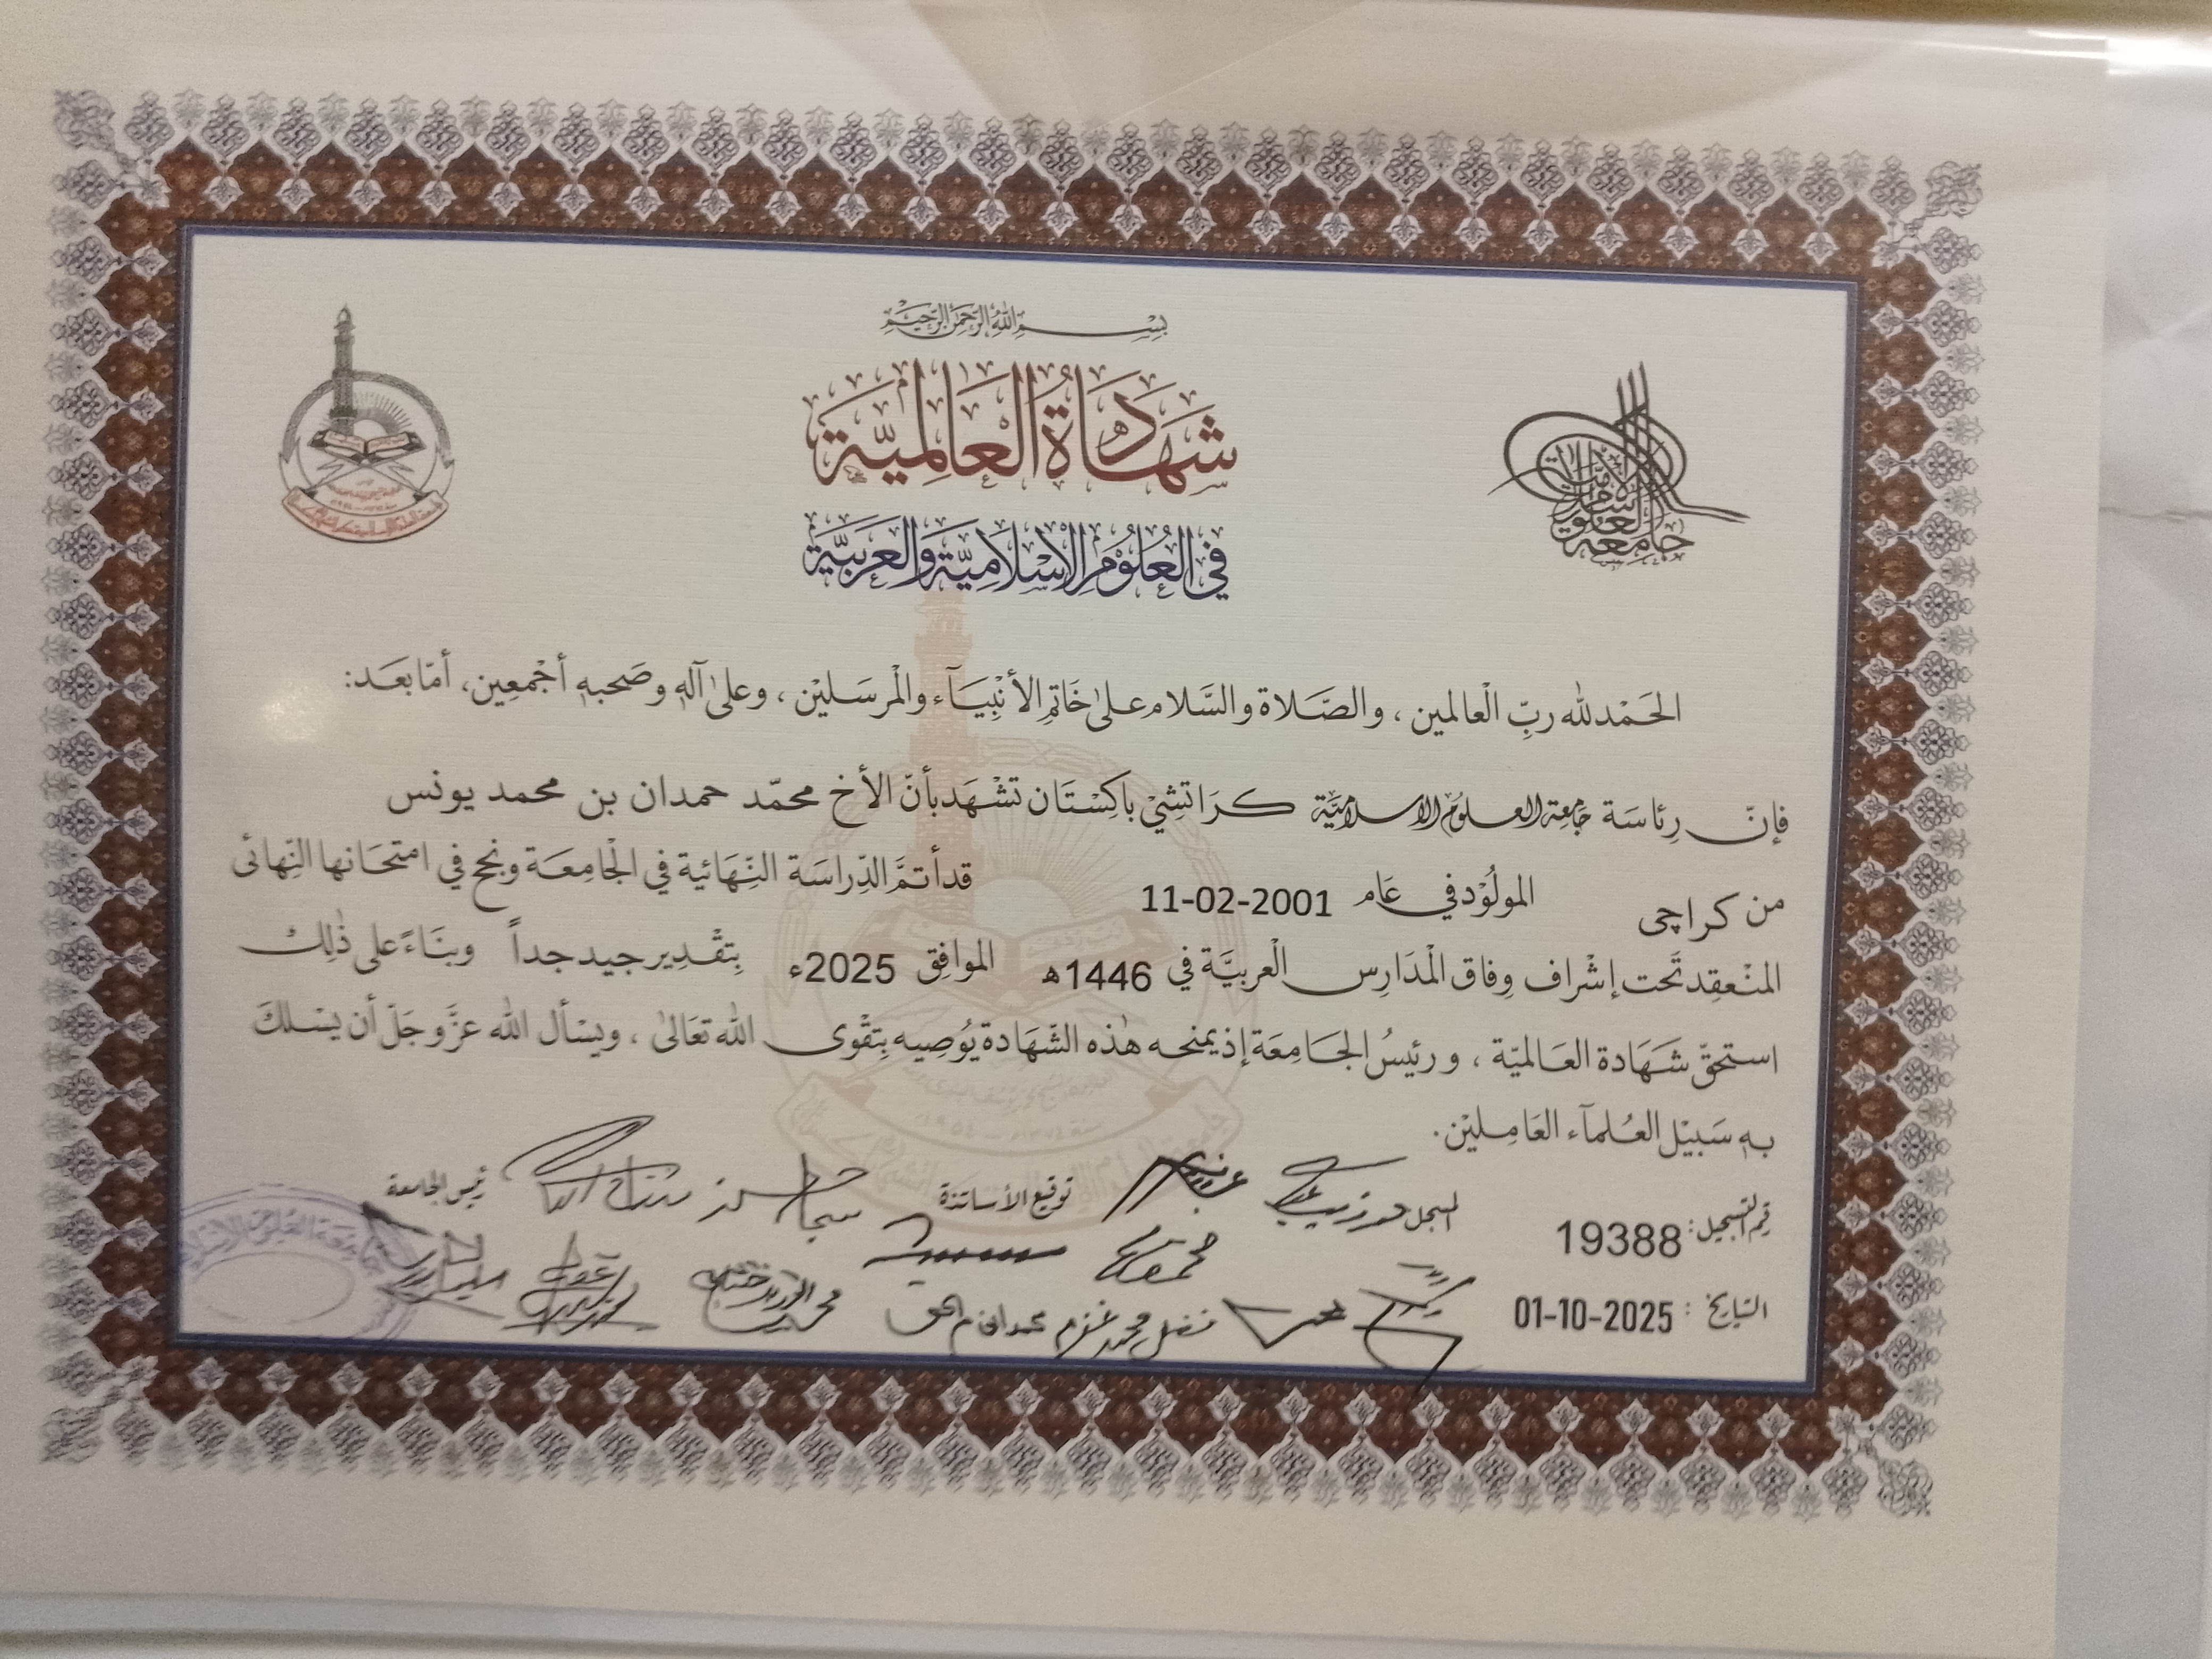 بسم الله الرحمن الرحيم
شَهَادَةُ العَالِمِيَّة
في العُلُومِ الإسْلَامِيَّة والعَرَبِيَّة
جامعة العلوم الاسلامية
الحَمْدلله ربِّ الْعالمين ، والصَّلاة والسَّلام على خَاتِمِ الأنْبِيَآء والْمرسَليْن ، وعلىٰ آلهٖ وصَحبهٖ أجْمعِين، أمّا بعَد:
فإنّ رِئاسَة جَامعة العلوم الاسلاميّة كرَاتشِيْ باكِسْتَان تشْهَد بأنّ الأخ محمّد حمدان بن محمد يونس
من كراچی المولُوْد في عَام 11-02-2001 قد أتمَّ الدِّراسَة النِّهَائية في الْجَامِعَة ونجح في امتحَانها النِّهائى
المنْعقِد تَحت إشْراف وِفاق الْمَدَارِس الْعربيَّة في 1446ھ الموافِق 2025ء بِتقْدِير جيد جداً وبنَاءً على ذٰلِك
استحقّ شَهَادة العَالميّة ، ورئيسُ الجَامِعَة إذ يمنحه هٰذه الشّهَادة يُوصِيه بِتقْوى الله تعَالىٰ ، ويسْأل الله عزَّوجَلّ أن يسْلكَ
بهٖ سَبيْل العُلمآء العَامِليْن.
رقم التسجيل: 19388 المسجل توقيع الأساتذة رئيس الجامعة
التاريخ : 01-10-2025